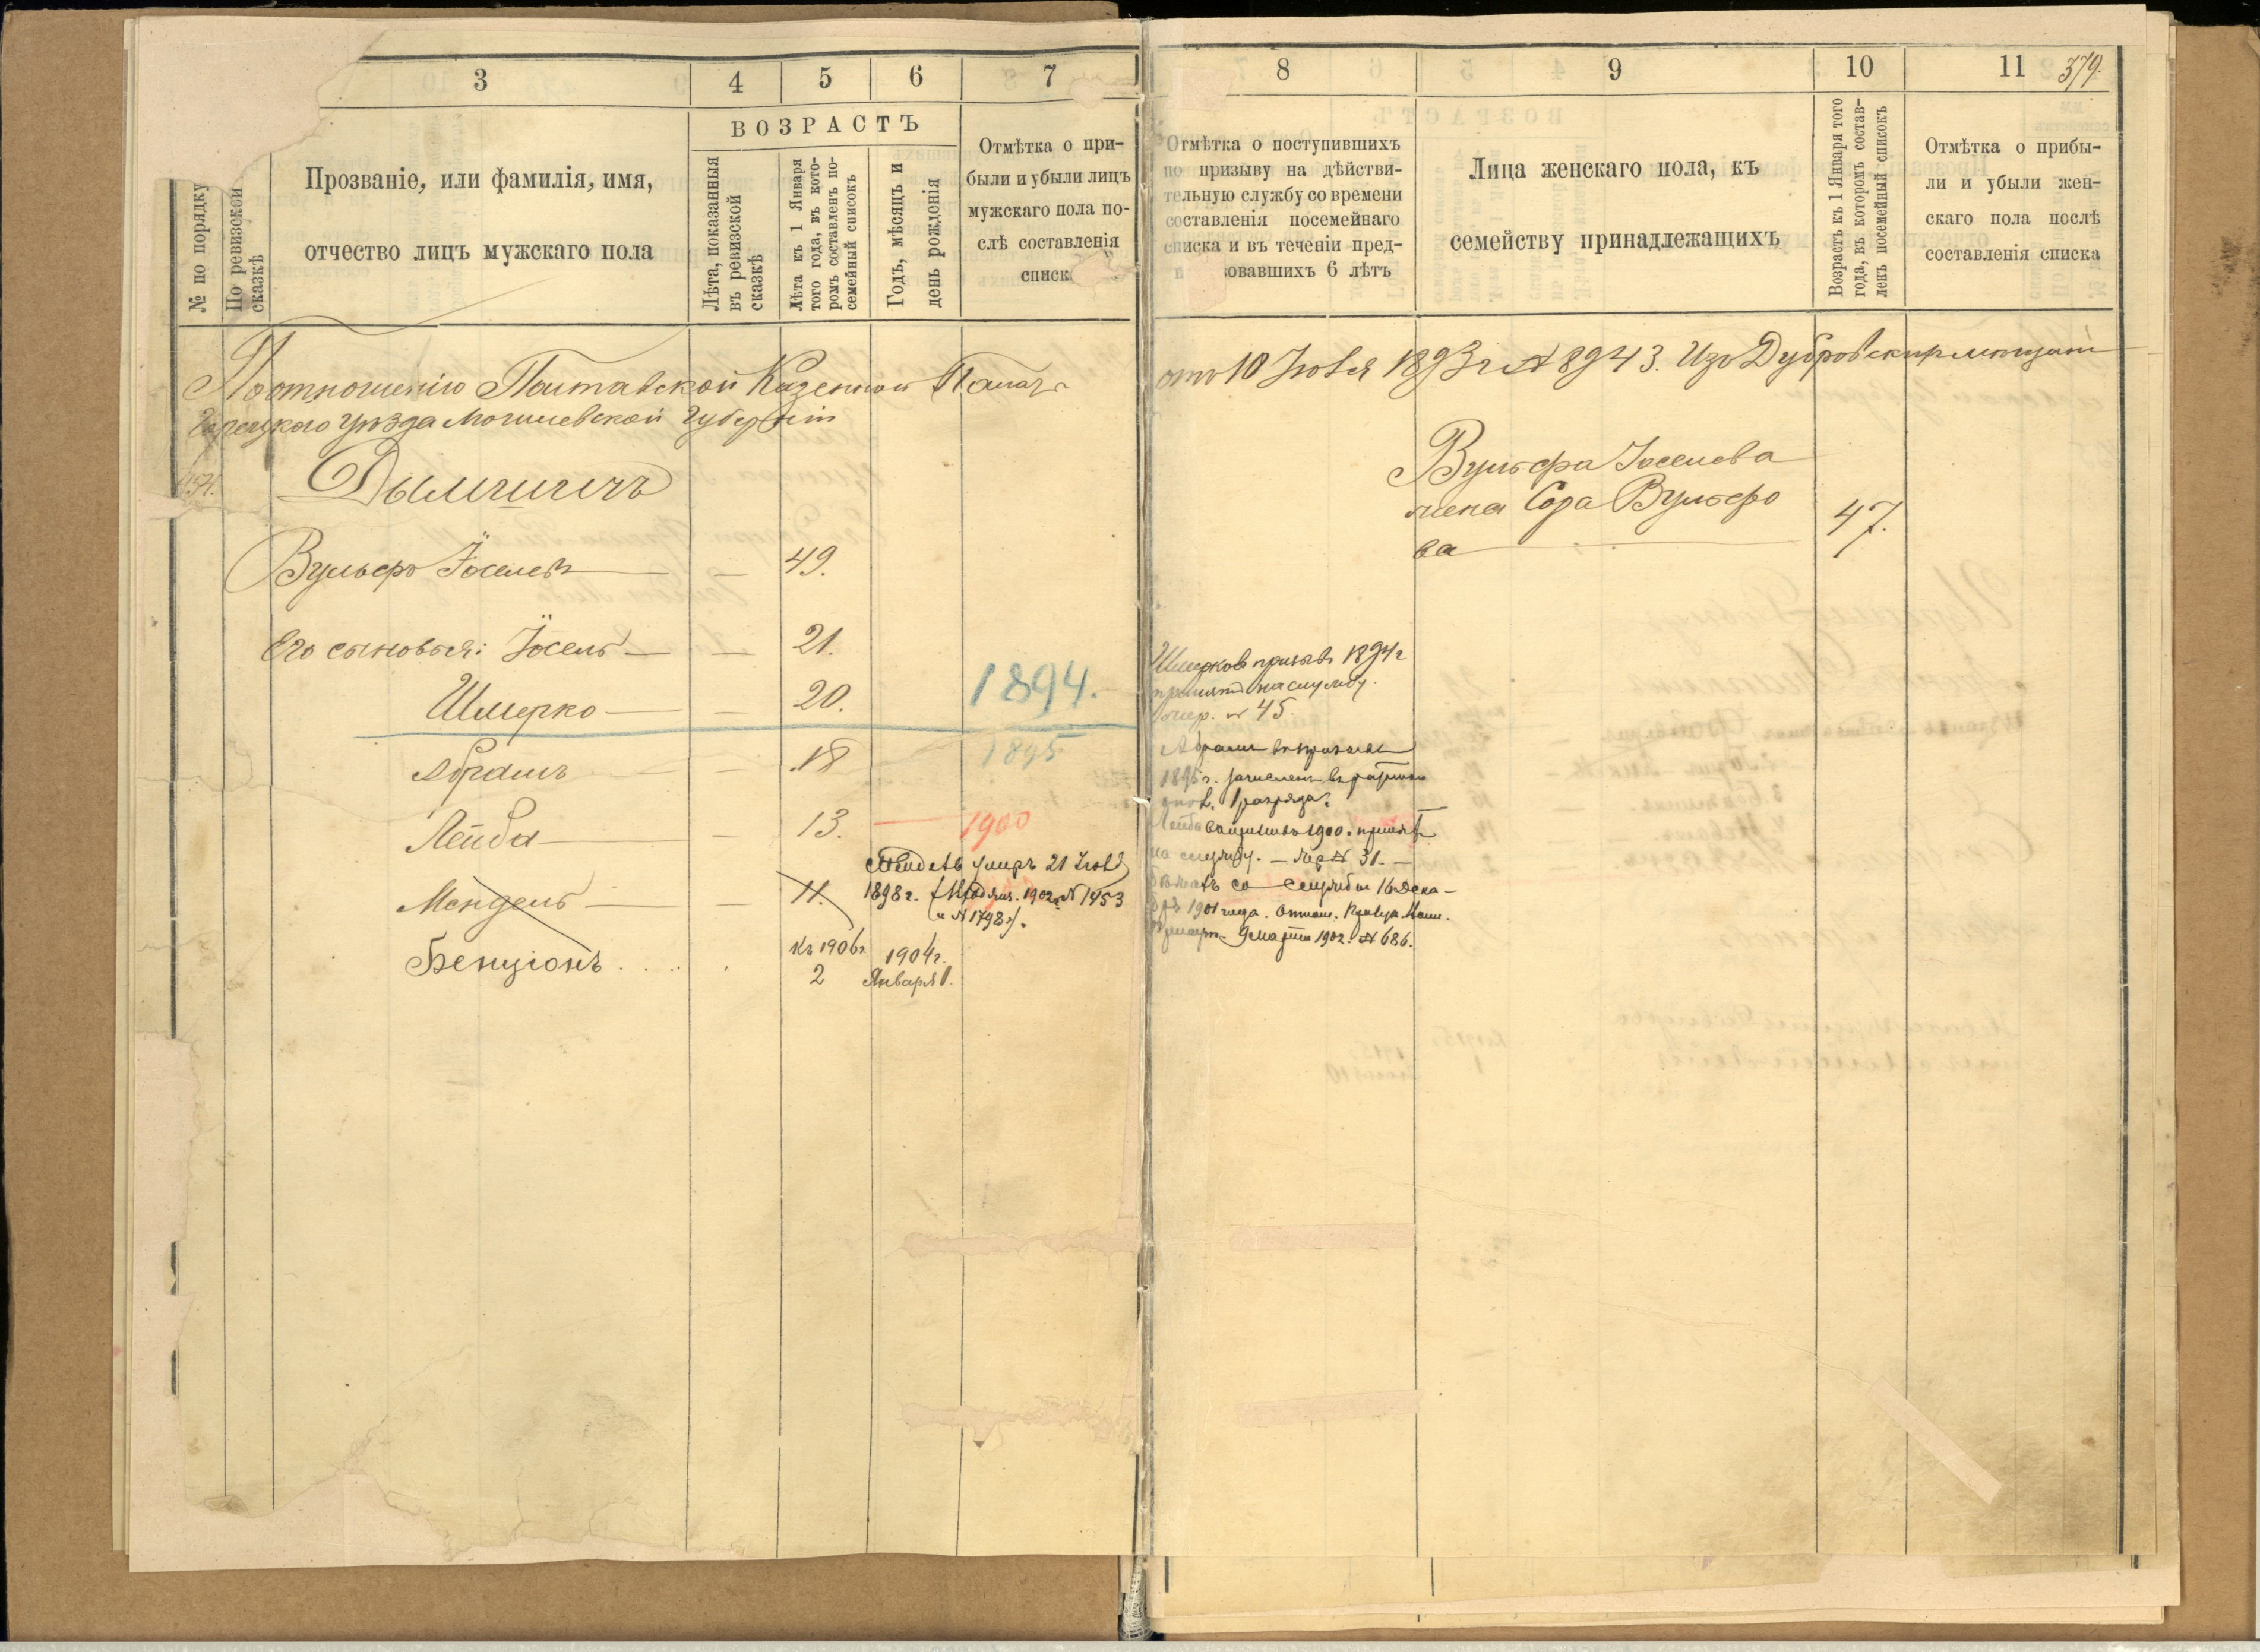 3
4
5
6
7
8
9
10
11
379.
№ по порядку
По ревизской
сказкѣ
Прозваніе, или фамилія, имя,
отчество лицъ мужскаго пола
ВОЗРАСТЪ
Лѣта, показанныя
въ ревизской
сказкѣ
Лѣта къ 1 Января
того года, въ кото-
ромъ составленъ по-
семейный списокъ
Годъ, мѣсяцъ и
день рожденія
Отмѣтка о при-
были и убыли лицъ
мужскаго пола по-
слѣ составленія
списк
Отмѣтка о поступившихъ
по призыву на дѣйстви-
тельную службу со времени
составленія посемейнаго
списка и въ теченіи пред-
овавшихъ 6 лѣтъ
Лица женскаго пола, къ
семейству принадлежащихъ
Возрастъ къ 1 Января того
года, въ которомъ состав-
ленъ посемейный списокъ
Отмѣтка о прибы-
ли и убыли жен-
скаго пола послѣ
составленія списка
По отношенію Полтавской Казенной Палаты
отъ 10 Іюля 1893 г № 8943. Изъ Дубровскихъ мѣщанъ
Горецкаго уѣзда Могилевской Губерніи
Дымшичъ
Вульфа Іоселева
жена Сора Вульфо
ва 47.
Вульфъ Іоселевъ — 49.
Его сыновья: Іосель — 21.
Шмерко — 20.
1894.
Шмерко въ призывъ 1894 г
принятъ на службу.
жер. № 45
Абрамъ — 18
1895
Абрамъ въ призывѣ
1895 г. зачисленъ въ ратники
опол. 1 разряда.
Лейба — 13. — 1900
Лейба въ призывъ 1900 г. принятъ
на службу. — Жер № 31. —
Мендель — 11.
Мендель умеръ 21 Іюля
1898 г. 1902 г. № 1453
и № 1798 г).
со службы 16 Дека-
бря 1901 года.
9 Марта 1902 г. № 686.
Бенціонъ
Къ 1906 г.
2
1904 г.
Января 1.